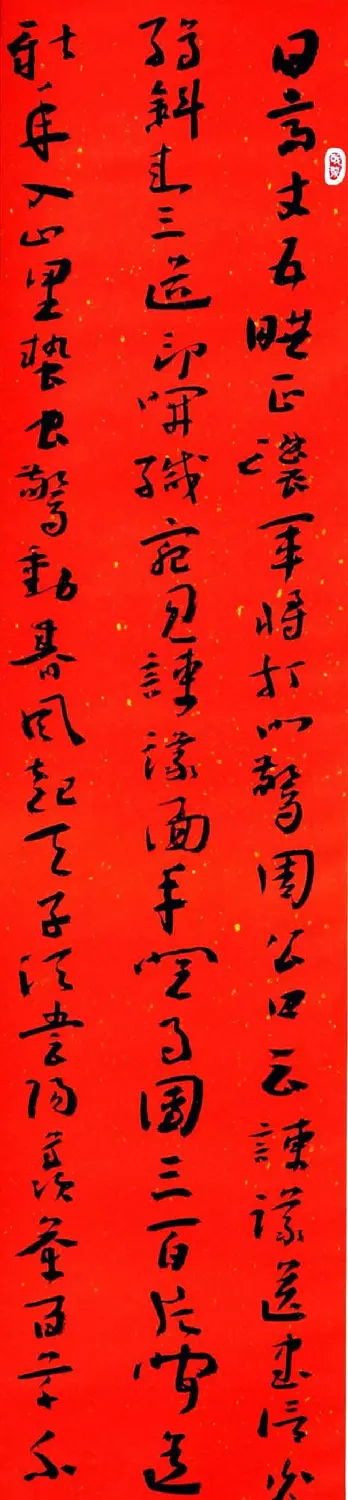 日高丈五睡正濃軍將打門驚周公口云諫議送書信
絹斜封三道印開緘宛見諫議面手閱月團三百片聞道
新年入山里蟄虫驚動春風起天子須嘗陽羨茶百草不